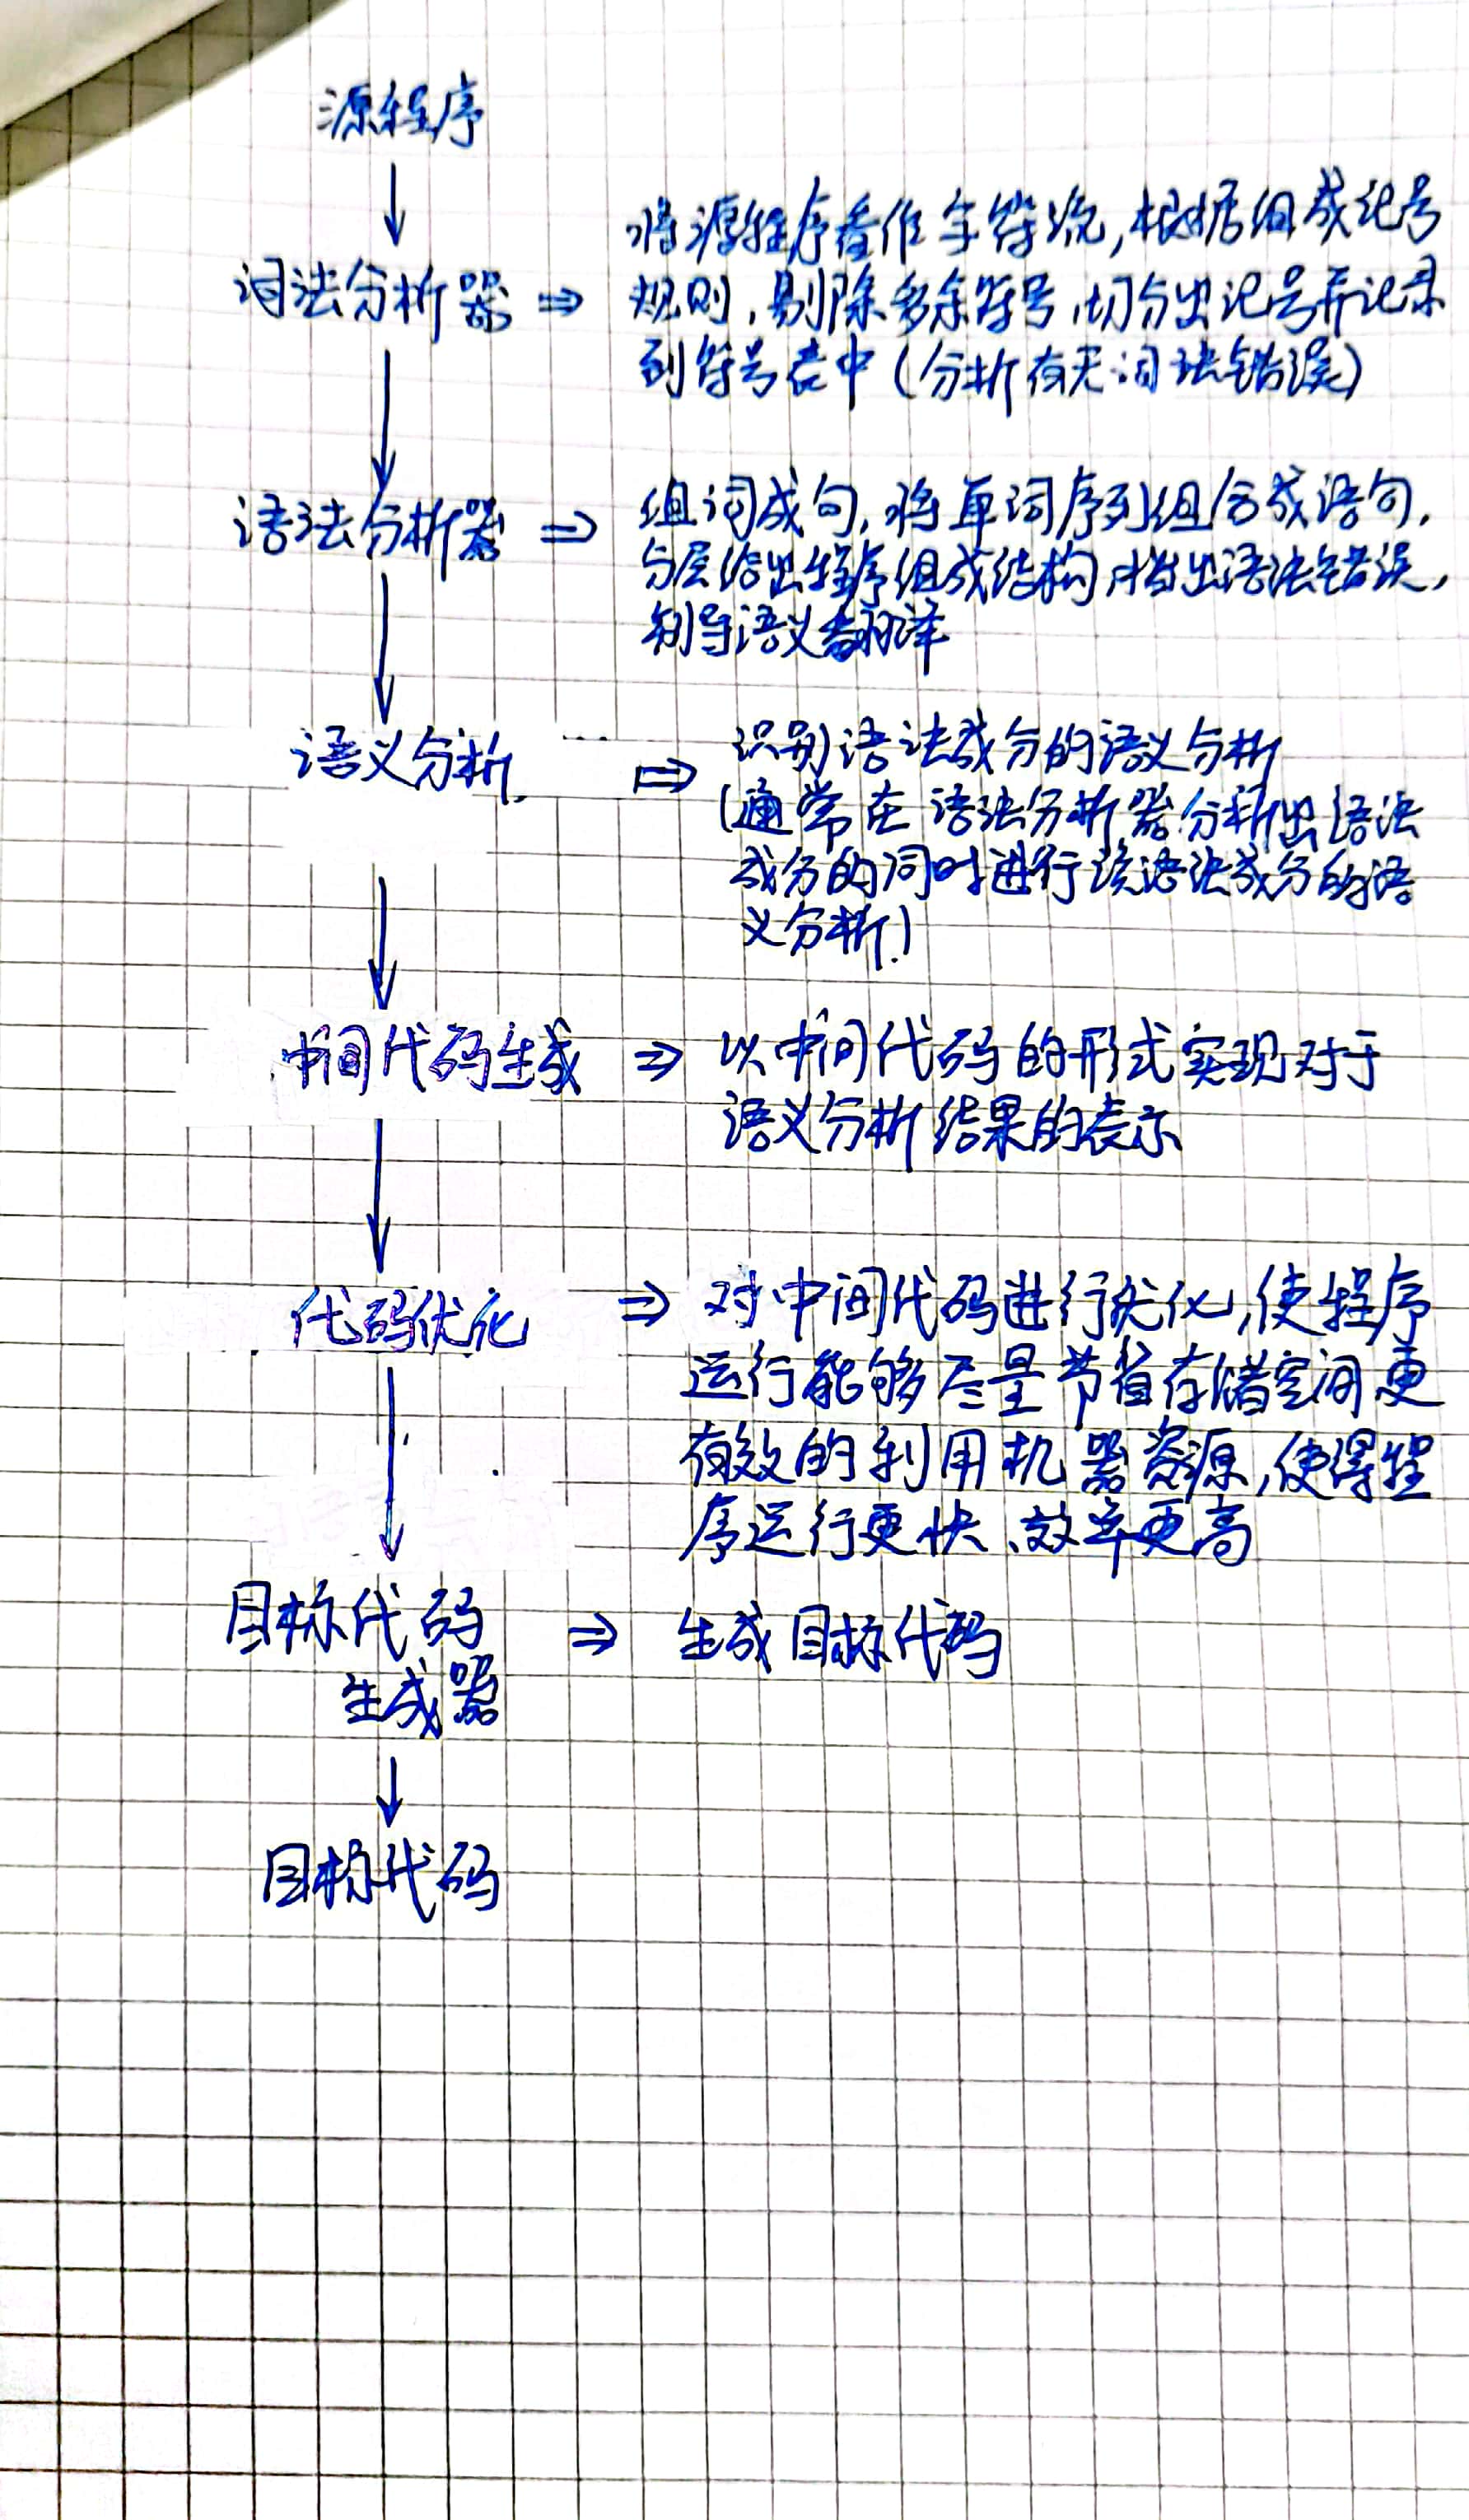 源程序
词法分析器 ⇒
将源程序看作字符流,根据组成记号
规则,剔除多余符号,切分出记号并记录
到符号表中(分析有无词法错误)
语法分析器 ⇒
组词成句,将单词序列组合成语句,
分层给出程序组成结构,指出语法错误,
制导语义翻译
语义分析 ⇒
识别语法成分的语义分析
(通常在语法分析器分析出语法
成分的同时进行该语法成分的语
义分析.)
中间代码生成 ⇒
以中间代码的形式实现对于
语义分析结果的表示
代码优化 ⇒
对中间代码进行优化,使程序
运行能够尽量节省存储空间更
有效的利用机器资源,使得程
序运行更快、效率更高
目标代码
生成器 ⇒
生成目标代码
目标代码